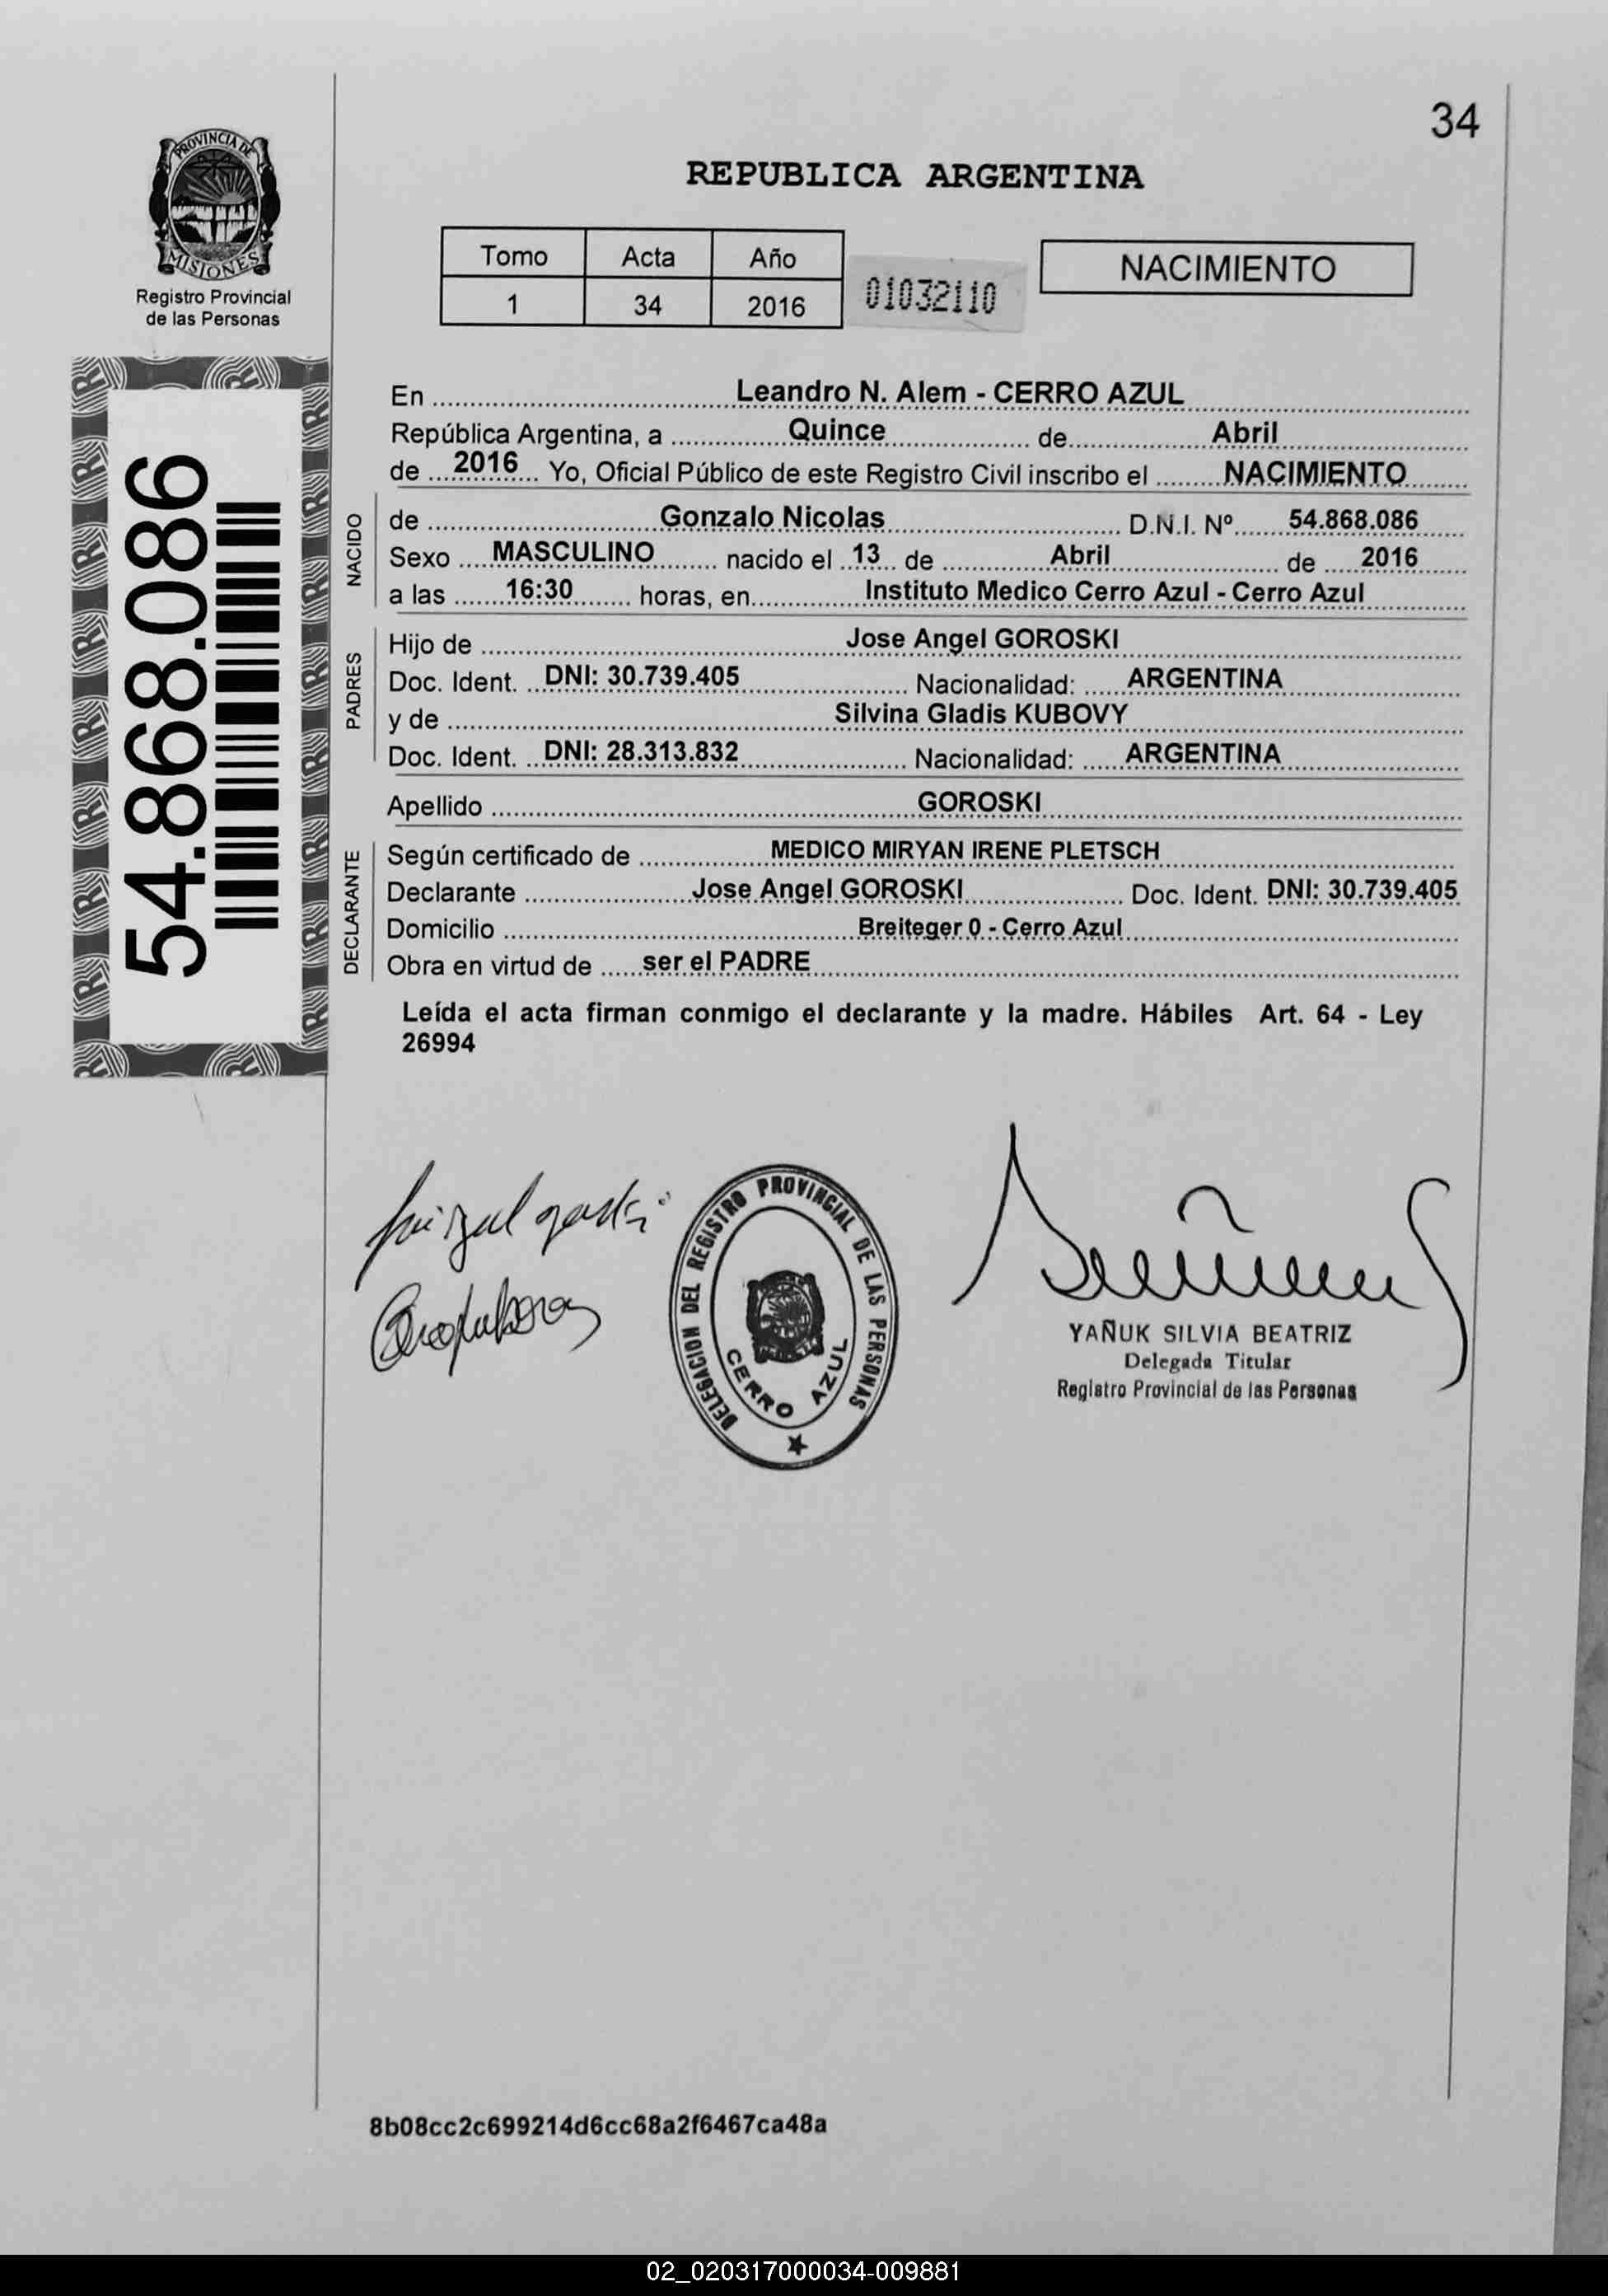 34
PROVINCIA DE
MISIONES
Registro Provincial
de las Personas
REPUBLICA ARGENTINA
Tomo Acta Año
1 34 2016
01032110
NACIMIENTO
54.868.086
En Leandro N. Alem - CERRO AZUL
República Argentina, a Quince de Abril
de 2016 Yo, Oficial Público de este Registro Civil inscribo el NACIMIENTO
NACIDO
de Gonzalo Nicolas D.N.I. Nº 54.868.086
Sexo MASCULINO nacido el 13 de Abril de 2016
a las 16:30 horas, en Instituto Medico Cerro Azul - Cerro Azul
PADRES
Hijo de Jose Angel GOROSKI
Doc. Ident. DNI: 30.739.405 Nacionalidad: ARGENTINA
y de Silvina Gladis KUBOVY
Doc. Ident. DNI: 28.313.832 Nacionalidad: ARGENTINA
Apellido GOROSKI
DECLARANTE
Según certificado de MEDICO MIRYAN IRENE PLETSCH
Declarante Jose Angel GOROSKI Doc. Ident. DNI: 30.739.405
Domicilio Breiteger 0 - Cerro Azul
Obra en virtud de ser el PADRE
Leída el acta firman conmigo el declarante y la madre. Hábiles Art. 64 - Ley
26994
DELEGACION DEL REGISTRO PROVINCIAL DE LAS PERSONAS
CERRO AZUL
YAÑUK SILVIA BEATRIZ
Delegada Titular
Registro Provincial de las Personas
8b08cc2c699214d6cc68a2f6467ca48a
02_020317000034-009881